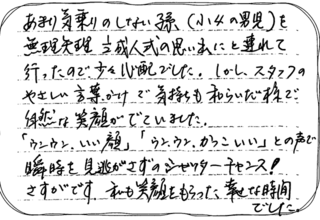 あまり気乗りのしない孫（小4の男児）を
無理矢理 立成人式の思い出にと連れて
行ったので少々心配でした。しかし、スタッフの
やさしい言葉かけで気持ちも和らいだ様で
自然な笑顔がでていました。
「ウンウン、いい顔」「ウンウン、かっこいい」との声で
瞬時を見逃がさずのシャッターチャンス！
さすがです。私も笑顔をもらった 幸せな時間
でした。